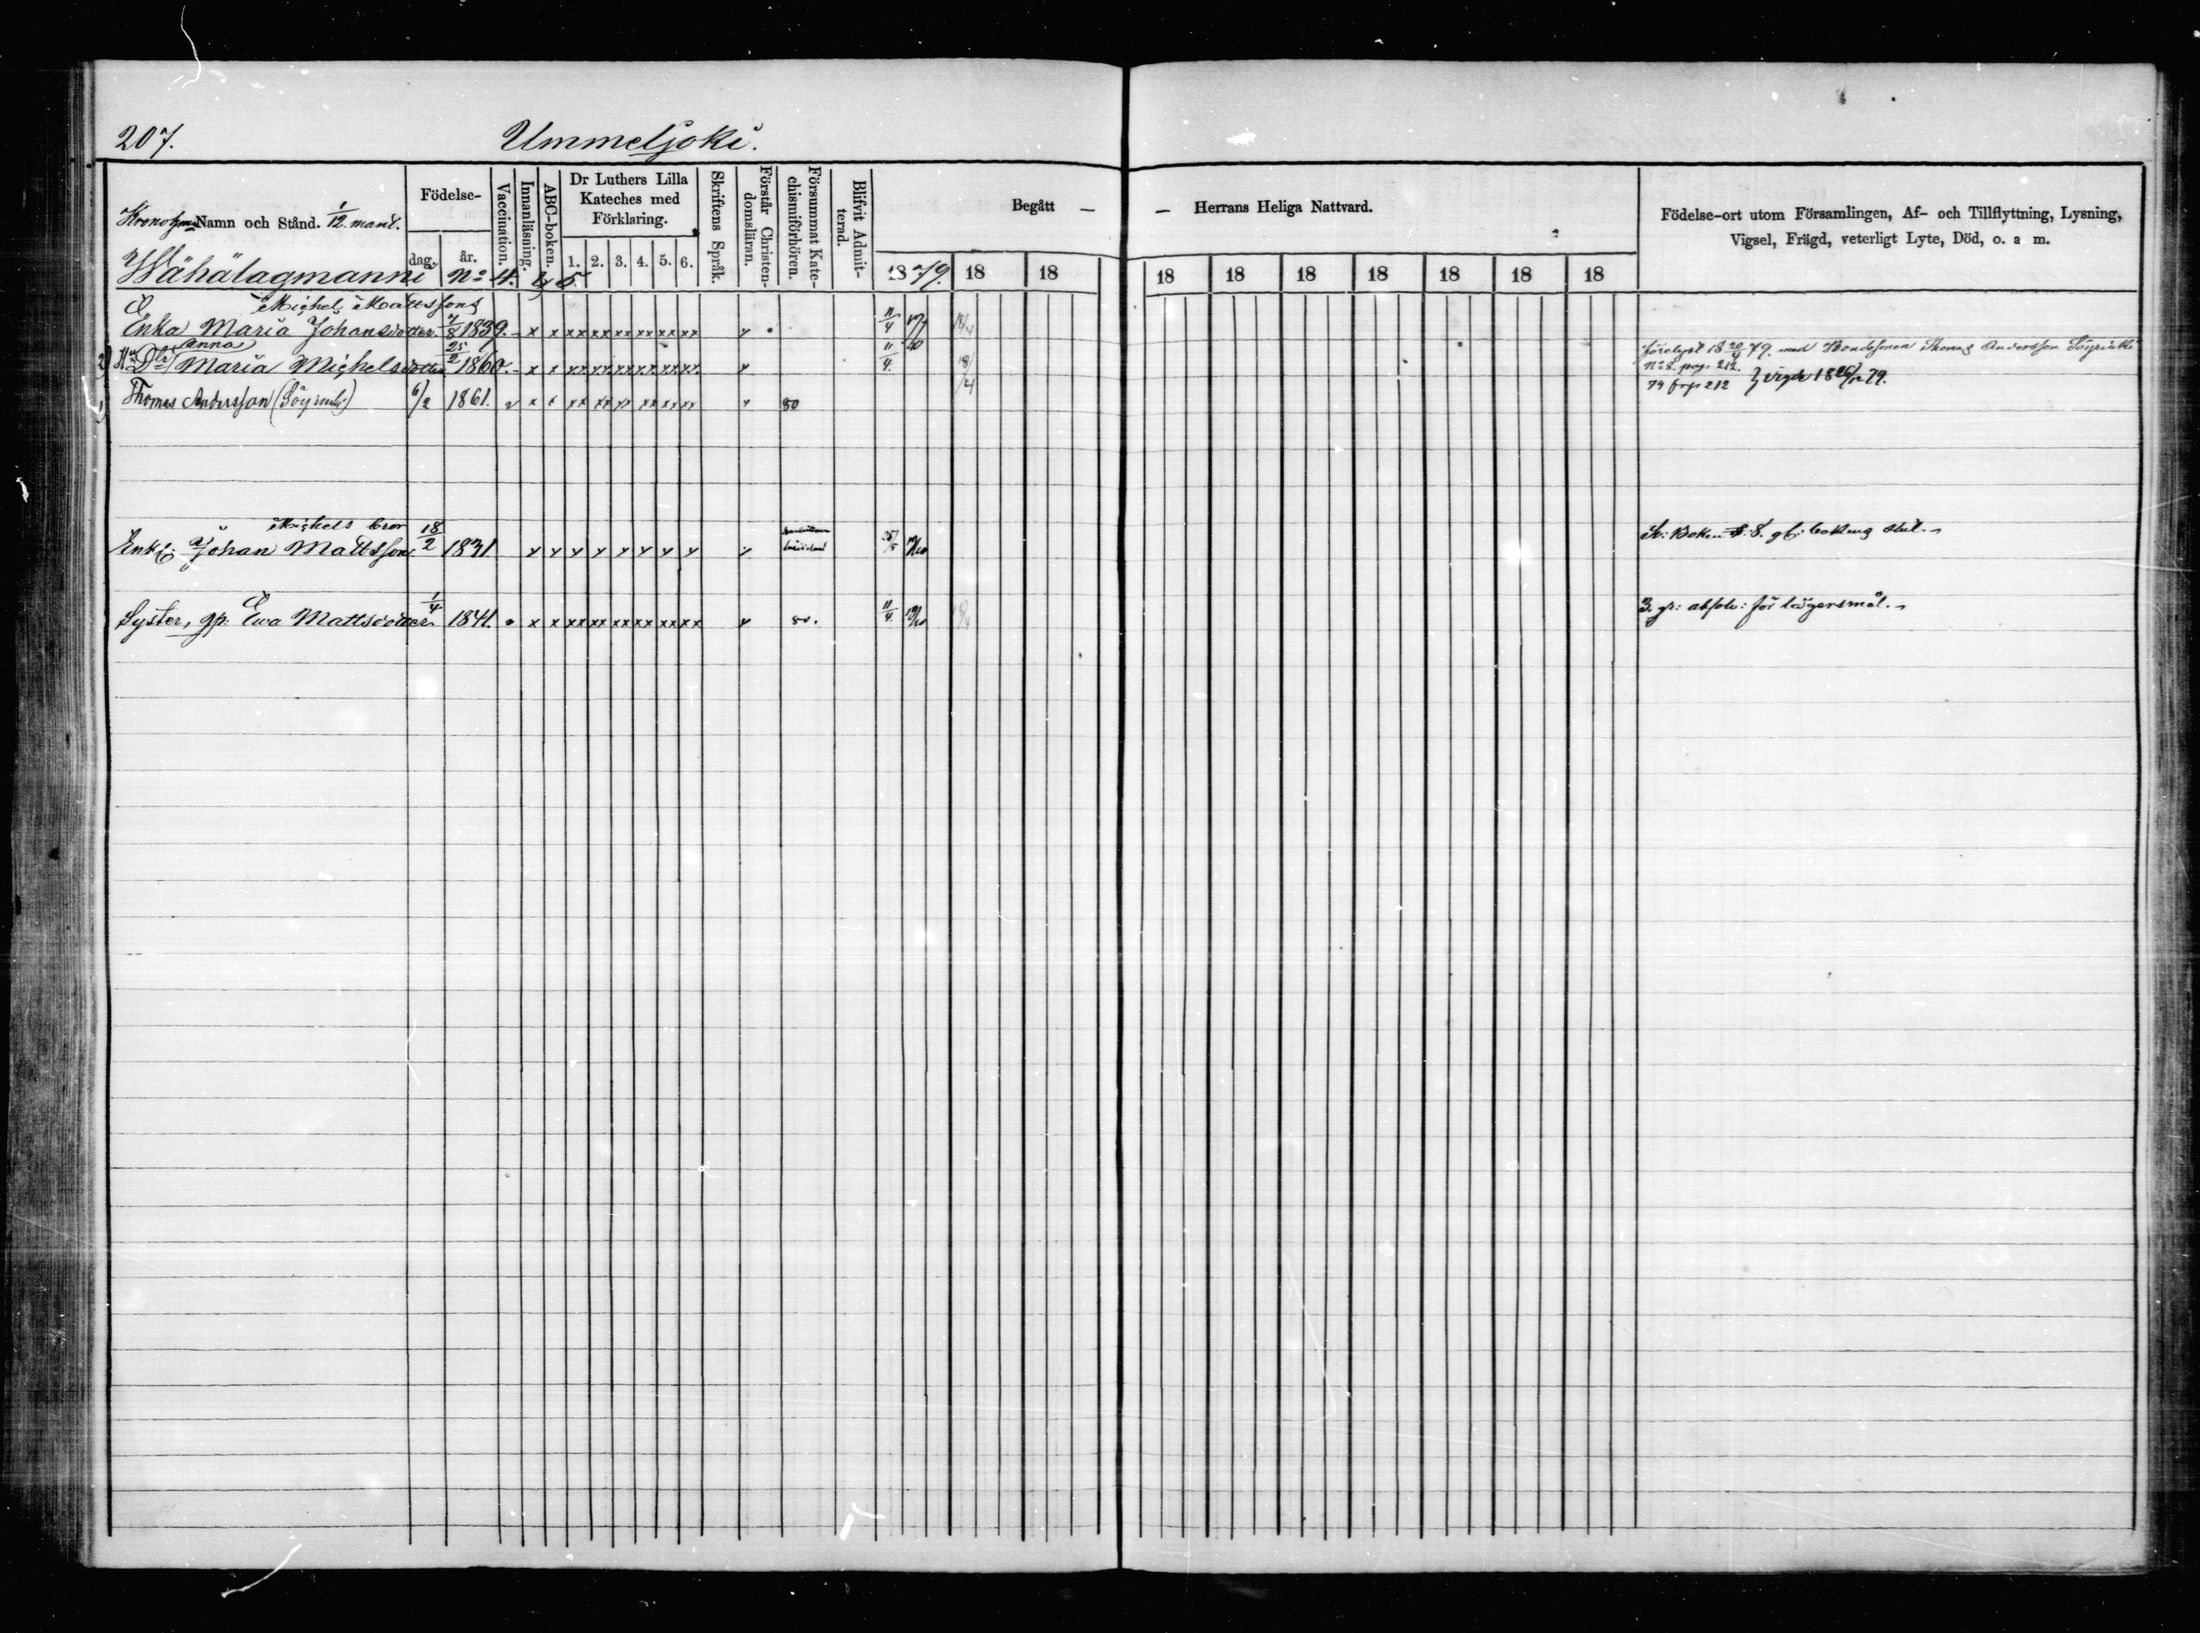 207. Ummeljoki.
Namn och Stånd. 1/12 mantl.
Födelse-
dag. år.
Vaccination.
Innanläsning.
ABC-boken.
Dr Luthers Lilla
Kateches med
Förklaring.
1. 2. 3. 4. 5. 6.
Skriftens Språk.
Förstår Christen-
domsläran.
Försummat Kate-
chismiförhören.
Blifvit Admit-
terad.
Begått — — Herrans Heliga Nattvard.
1879. 18 18 18 18 18 18 18 18 18
Födelse-ort utom Församlingen, Af- och Tillflyttning, Lysning,
Vigsel, Frägd, veterligt Lyte, Död, o. s. m.
Wähälagmanni No 4. & 5.
Michel Mattssons
Enka Maria Johansdotter. 7/8 1839. - x x xx xx xx xx xx xx x 11/4 18/4
Anna
2) Dtr Maria Michelsdotter 25/2 1860. - x x xx xx xx xx xx xx x 11/4. 18/4
Förelyst 18 20/4 79. med Bondesonen Thomas Andersson Söyrinki
No 8. pag. 212.
1) Thomas Andersson (Söyrinki) 6/2 1861. v x x xx xx xx xx xx xx x 80
79 frp 212 } vigde 18 79.
Michels bror
Enkl. Johan Mattsson 18/2 1831 x x x x x x x x x
S. 8. gl: bokens slut.
Syster, gp: Ewa Mattsdotter 1/4 1841. x x xx xx xx xx xx xx x 80. 11/4
3. gr: absolv: för lägersmål.